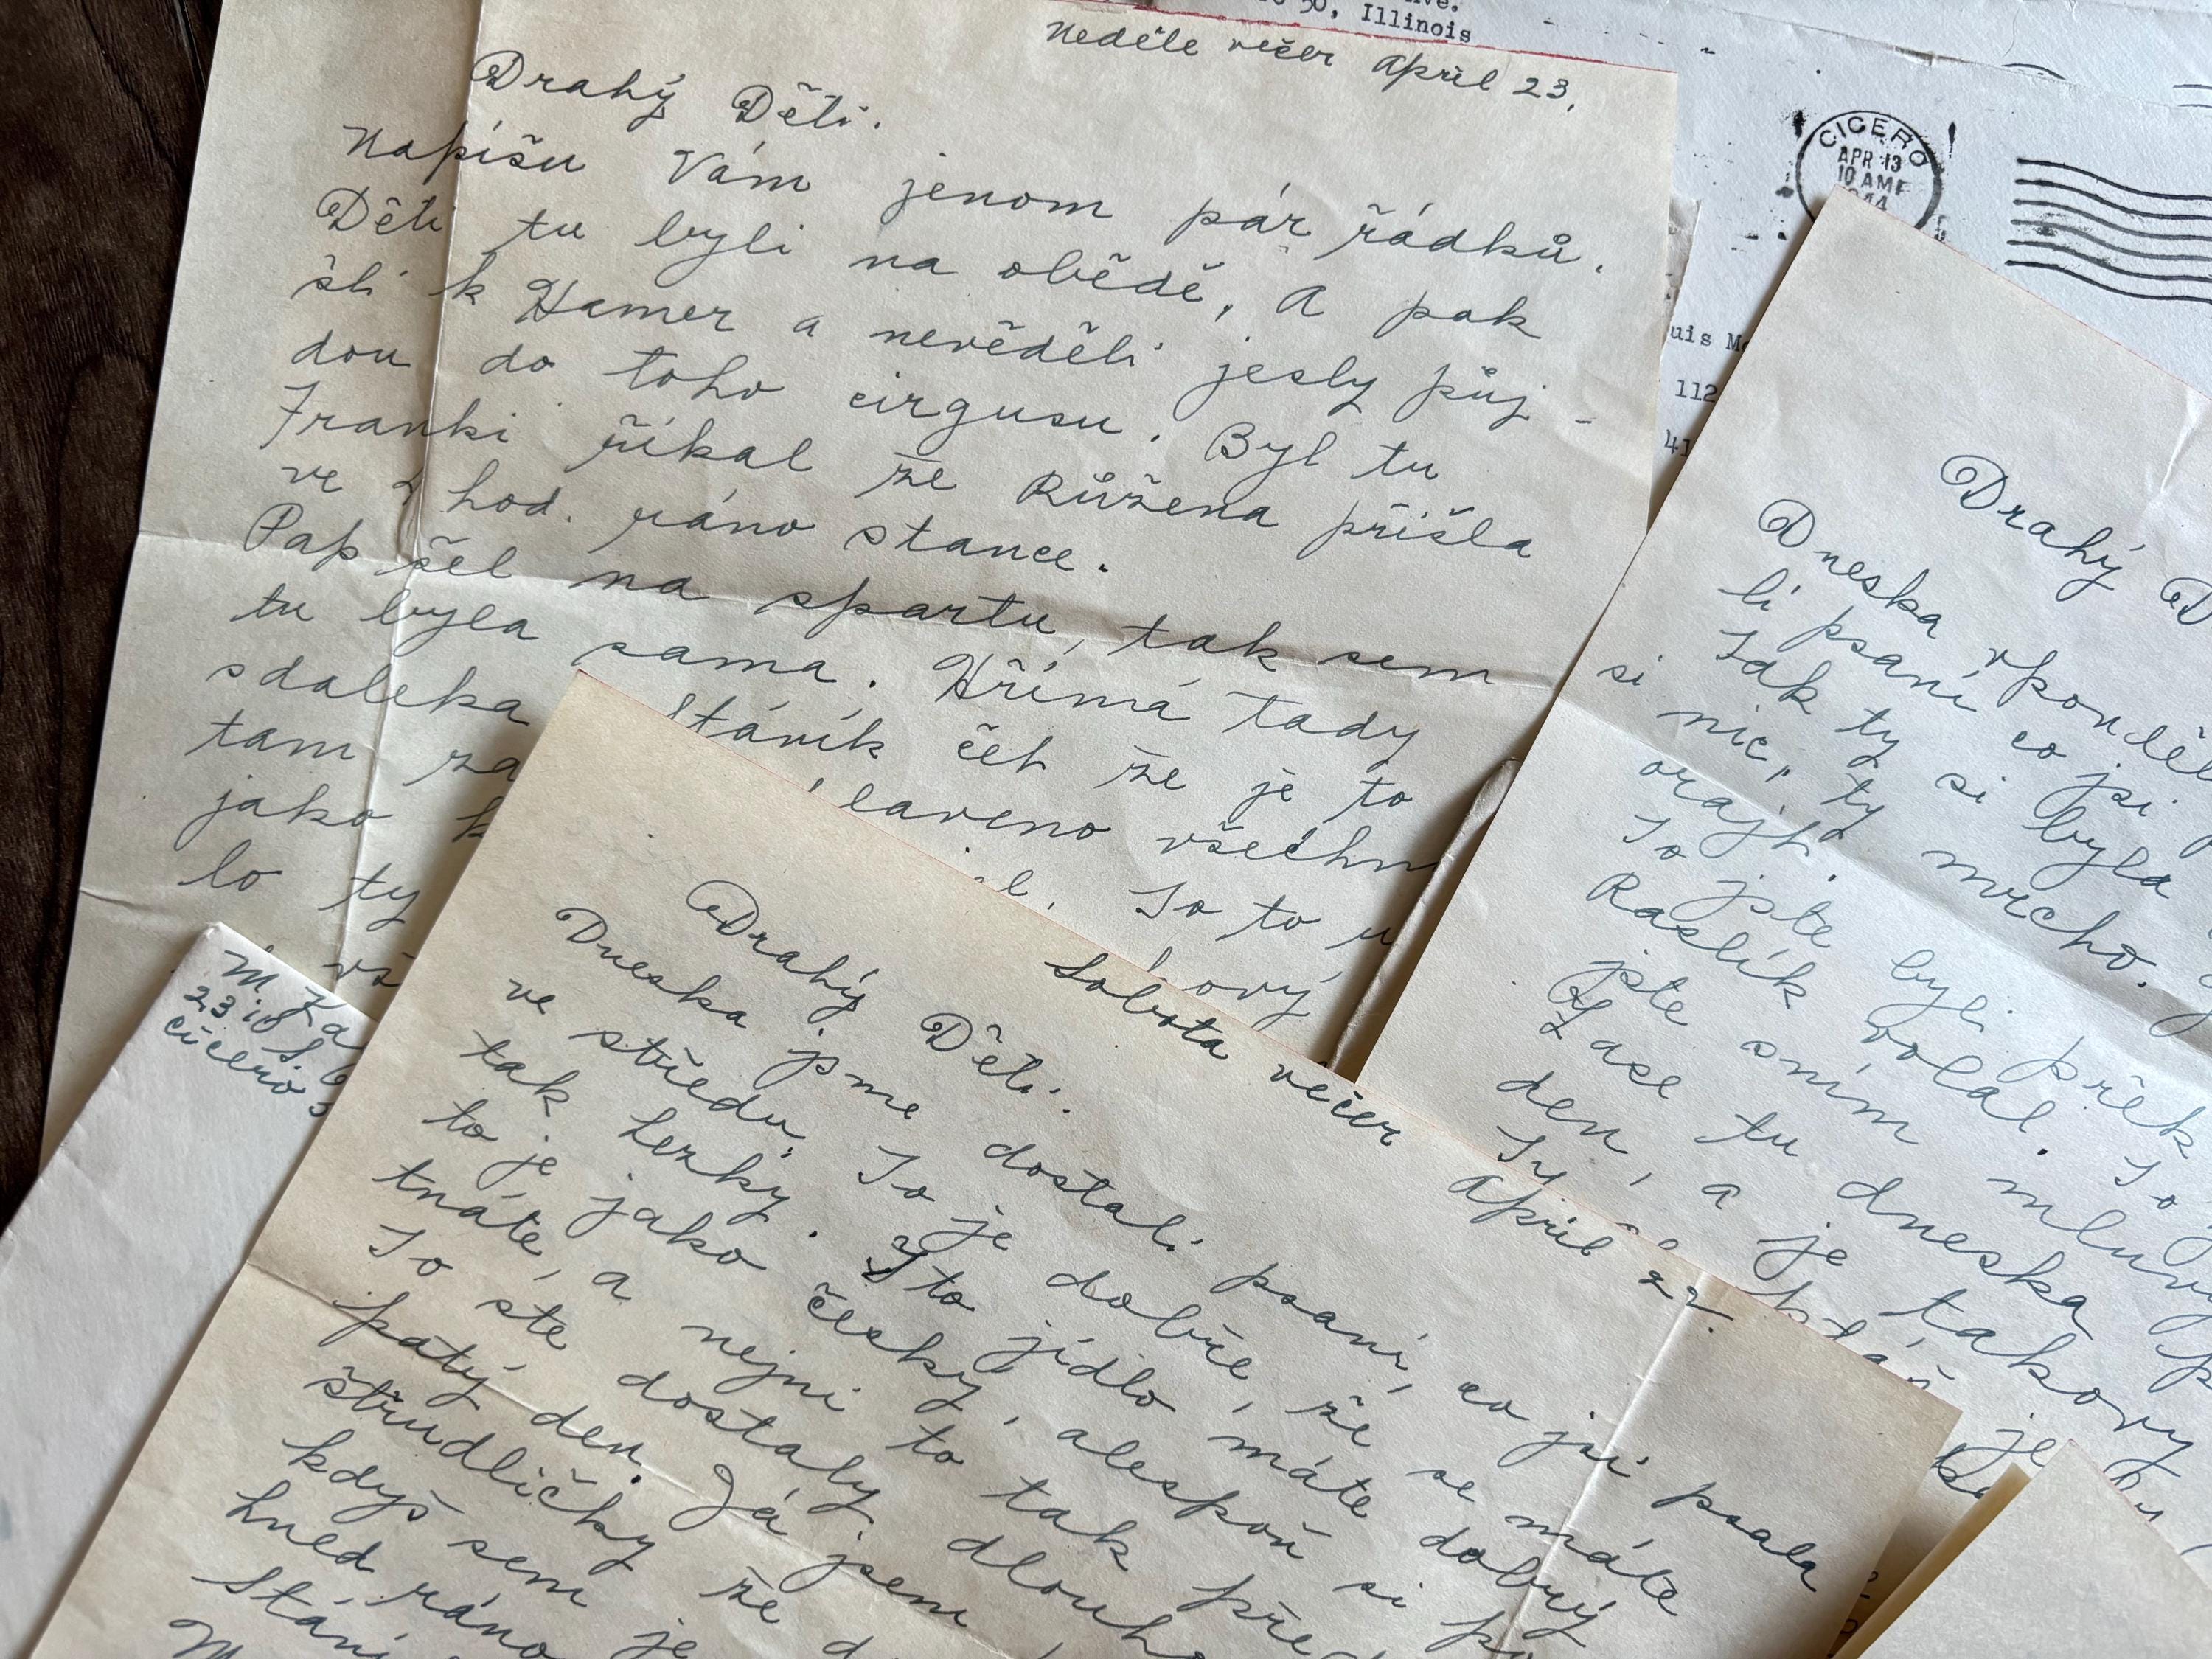 Neděle večer April 23.
Drahý Děti.
Napíšu Vám jenom pár řádků.
Děti tu byli na obědě, A pak
šli k Hamer a nevěděli jesly půj-
dou do toho cirgusu. Byl tu
Franki říkal že Růžena přišla
ve hod. ráno stance.
Pap šel na spartu, tak sem
tu byla sama. Hřímá tady
sdaleka Stáník čet že je to
tam za laveno všechn
jako k l. To to u
lo ty ový
vš
Illinois
CICERO
APR 13
10 AM
44
uis M
112
41
Drahý D
Dneska vponděl
li psaní co jsi p
Jak ty si byla
si nic, ty mrcho.
orajt.
To jste byli přek
Raslík volal. To
jste sním mluv
Zase tu dneska p
den, a je takovy
Ty je
Sobota večer April 22.
Drahý Děti.
Dneska jsme dostali psaní, co jsi psala
ve středu. To je dobře, že se máte
tak hezky. I to jídlo máte dobrý
to je jako česky, alespoň si po
tnáte, a nejni to tak před
To ste dostaly dlouho
patý den. Já jsem
štrudličky že d
kdyš sem je
hned ráno
Stáni
M
M Ka
2310 S
Cicero 5